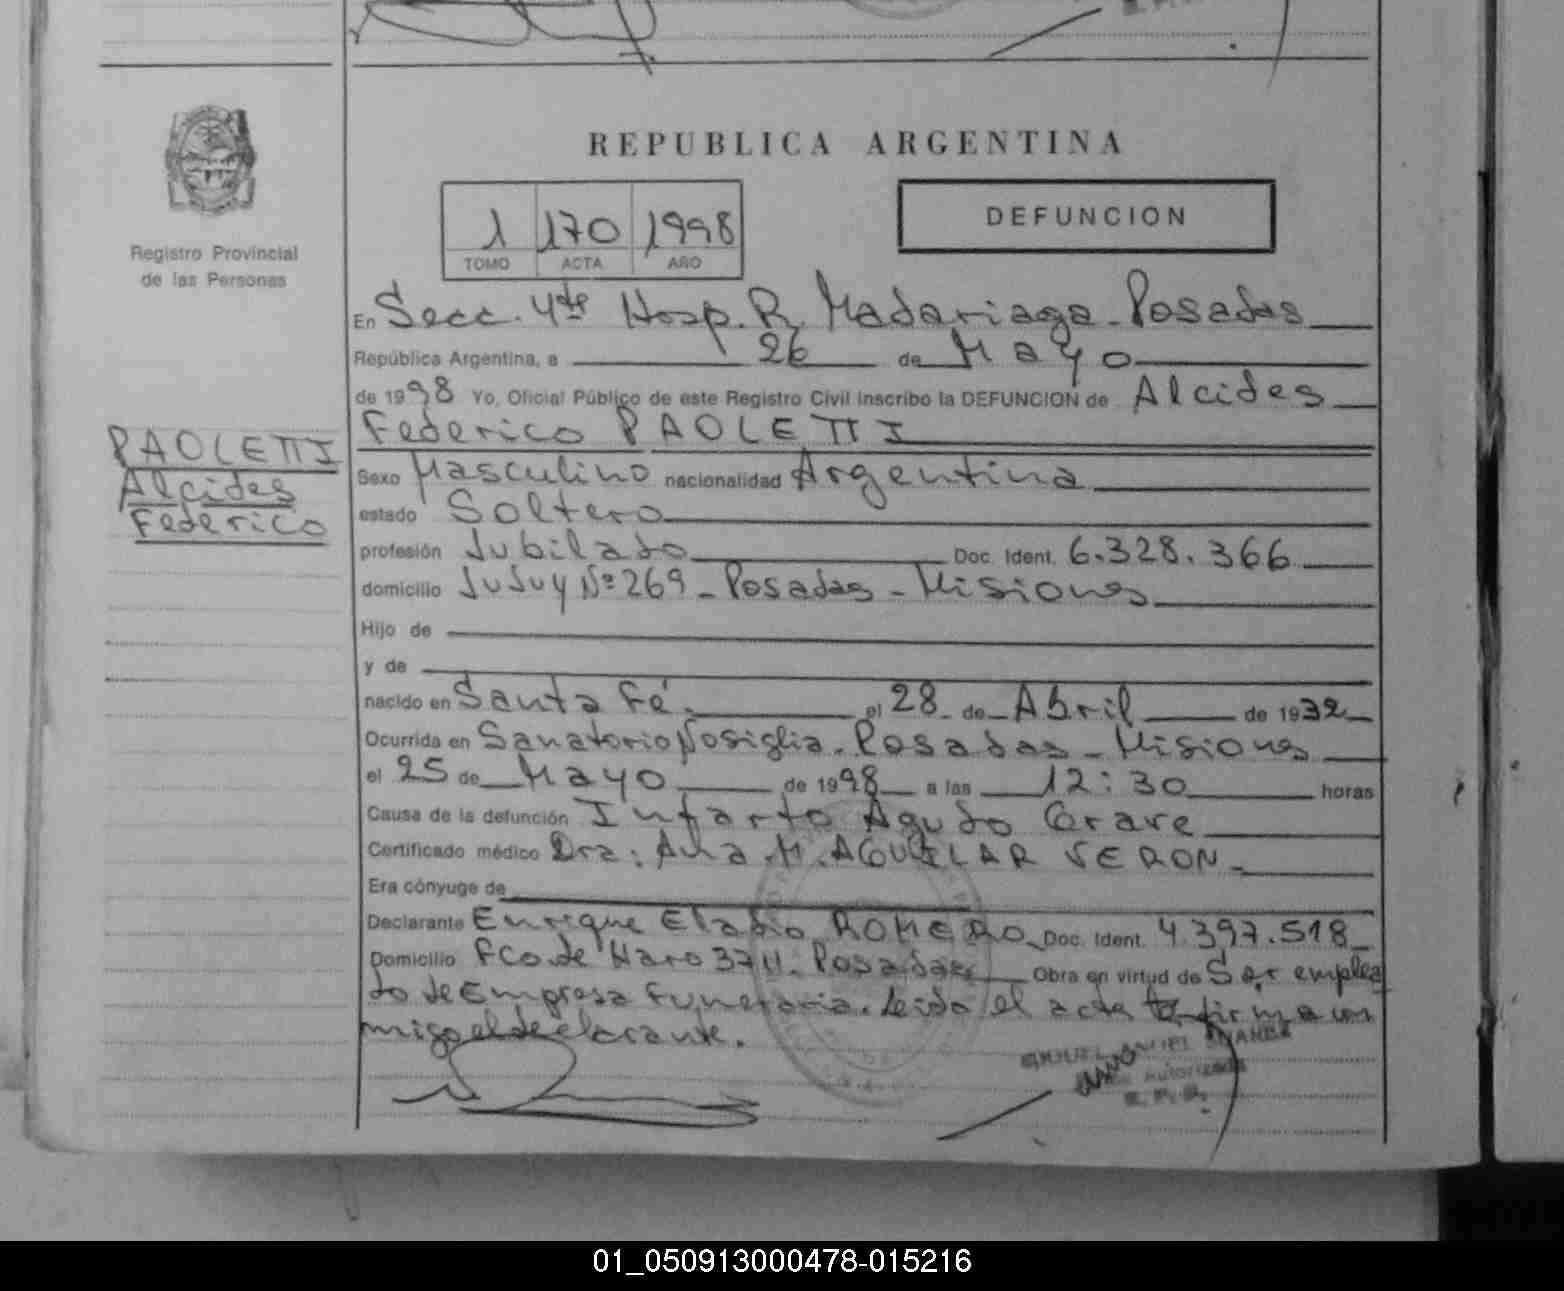 REPUBLICA ARGENTINA
1 170 1998
TOMO ACTA AÑO
DEFUNCION
Registro Provincial
de las Personas
En Secc. 4ta Hosp. R. Madariaga - Posadas
República Argentina, a 26 de Mayo
de 1998 Yo, Oficial Público de este Registro Civil inscribo la DEFUNCION de Alcides
Federico PAOLETTI
PAOLETTI
Alcides
Federico
Sexo Masculino nacionalidad Argentina
estado Soltero
profesión Jubilado Doc. Ident. 6.328.366
domicilio Jujuy Nº 269 - Posadas - Misiones
Hijo de
y de
nacido en Santa Fé. el 28 de Abril de 1932
Ocurrida en Sanatorio Nosiglia. Posadas - Misiones
el 25 de Mayo de 1998 a las 12:30 horas
Causa de la defunción Infarto Agudo Grave
Certificado médico Dra: Ana M. AGUILAR VERON
Era cónyuge de
Declarante Enrique Eladio ROMERO Doc. Ident. 4.397.518
Domicilio Fco de Haro 3711. Posadas Obra en virtud de Ser emplea
do de Empresa Funeraria. Leída el acta firma con
migo el declarante.
MIGUEL ANGEL
Autorizado
01_050913000478-015216